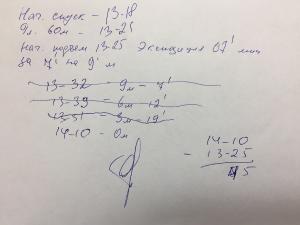 Нач. спуск – 13-18
Гл. 60м – 13-25
Нач. подъем 13-25 Экспозиция 07' мин
за 7' на 9' м
13-32 – 9м – 7'
13-39 – 6м – 12'
13-51 – 3м – 19'
14-10 – 0м
14-10
- 13-25
45